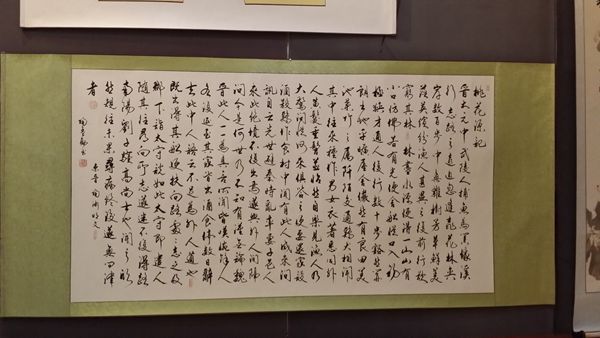 桃花源記
晉太元中武陵人捕魚為業緣溪
行忘路之遠近忽逢桃花林夾
岸數百步中無雜樹芳草鮮美
落英繽紛漁人甚異之復前行欲
窮其林林盡水源便得一山山有
小口仿佛若有光便舍船從口入初
極狹才通人復行數十步豁然開
朗土地平曠屋舍儼然有良田美
池桑竹之屬阡陌交通雞犬相聞
其中往來種作男女衣著悉同外
人黃髮垂髫並怡然自樂見漁人乃
大驚問所從來俱答之便要還家設
酒殺雞作食村中聞有此人咸來問
訊自云先世避秦時亂率妻子邑人
來此絕境不復出焉遂與外人間隔
問今是何世乃不知有漢無論魏
晉此人一一為具言所聞皆嘆惋餘人
各復延至其家皆出酒食停數日辭
去此中人語云不足為外人道也
既出得其船便扶向路處處志之及
郡下詣太守說如此太守即遣人
隨其往尋向所志遂迷不復得路
南陽劉子驥高尚士也聞之欣
然規往未果尋病終後遂無問津
者
東晉陶淵明文